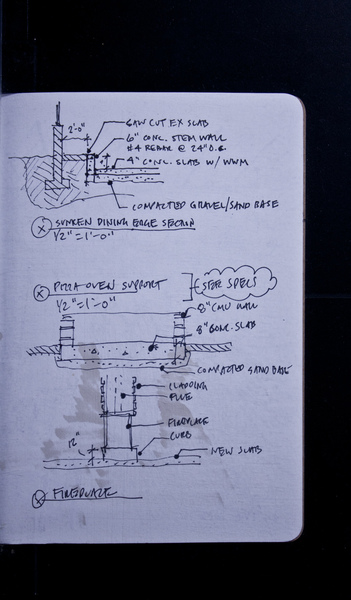 2'-0"
SAW CUT EX SLAB
6" CONC. STEM WALL
#4 REBAR @ 24" O.C.
4" CONC. SLAB W/ WWM
COMPACTED GRAVEL/SAND BASE
X SUNKEN DINING EDGE SECTION
1/2" = 1'-0"
X PIZZA OVEN SUPPORT
SEE SPECS
1/2" = 1'-0"
8" CMU WALL
8" CONC. SLAB
COMPACTED SAND BASE
CLADDING
FLUE
FIREPLACE
12"
CURB
NEW SLAB
X FIREPLACE